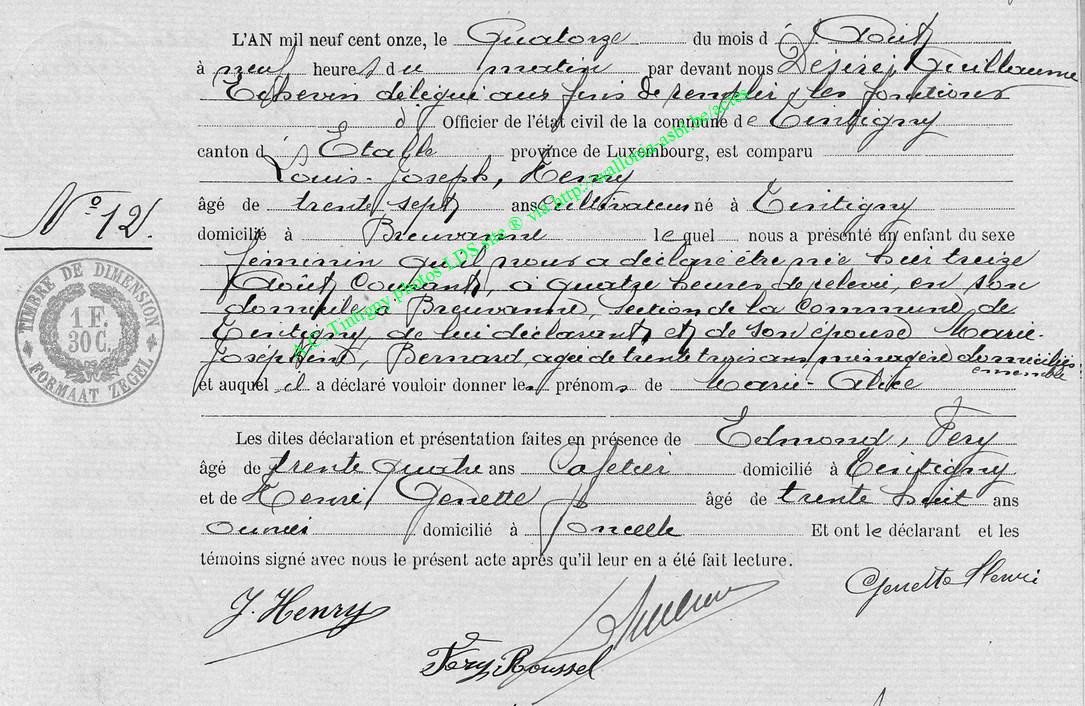 L'AN mil neuf cent onze, le Quatorze du mois d' Août
à neuf heures du matin par devant nous Désiré, Guillaume
Echevin délégué aux fins de remplir les fonctions
d' Officier de l'état civil de la commune de Tintigny
canton d' Etalle province de Luxembourg, est comparu
Louis-Joseph, Henry
âgé de trente sept ans cultivateur né à Tintigny
domicilié à Breuvanne lequel nous a présenté un enfant du sexe
féminin qu'il nous a déclaré être née hier treize
Août Courant, à quatre heures de relevée, en son
domicile à Breuvanne, section de la Commune de
Tintigny, de lui déclarant et de son épouse Marie-
Joséphine, Bernard, agée de trente trois ans, ménagère domiciliés
ensemble
et auquel il a déclaré vouloir donner les prénoms de Marie-Alice
Les dites déclaration et présentation faites en présence de Edmond, Fery
âgé de trente quatre ans Cafetier domicilié à Tintigny
et de Henri, Genette âgé de trente huit ans
ouvrier domicilié à Poncelle Et ont le déclarant et les
témoins signé avec nous le présent acte après qu'il leur en a été fait lecture.
J. Henry
Genette Henri
Fery-Roussel
N° 12.
TIMBRE DE DIMENSION
1 F.
30 C.
FORMAAT ZEGEL
A.C. Tintigny photos LDS site ® via http://wallonia-asbl.be/actes